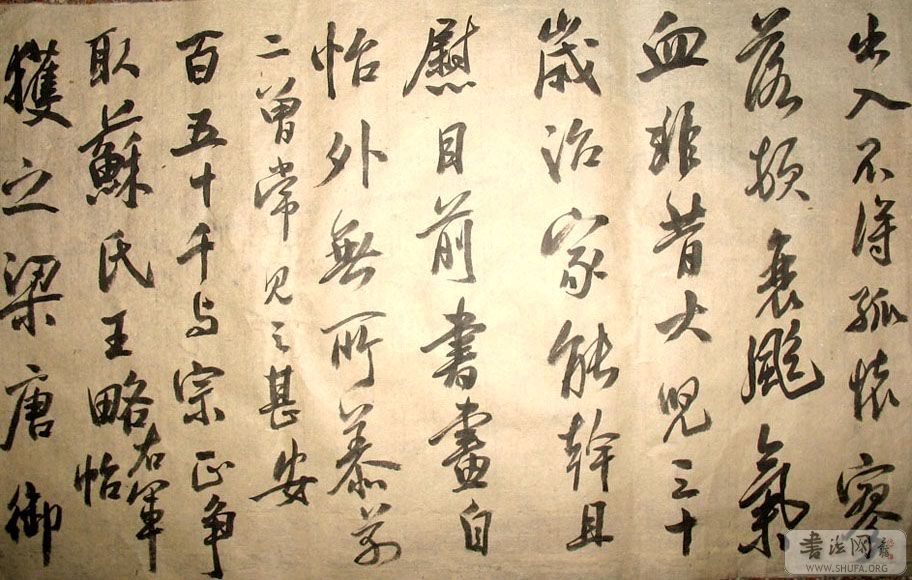 出入不得孤懷寥
落頓衰颯氣
血非昔大兒三十
歲治家能幹且
慰目前書畫自
怡外無所慕前
二曾常見之甚安
百五十千与宗正争
取蘇氏王略帖
右軍
獲之梁唐御
书法网
WWW.SHUFA.ORG